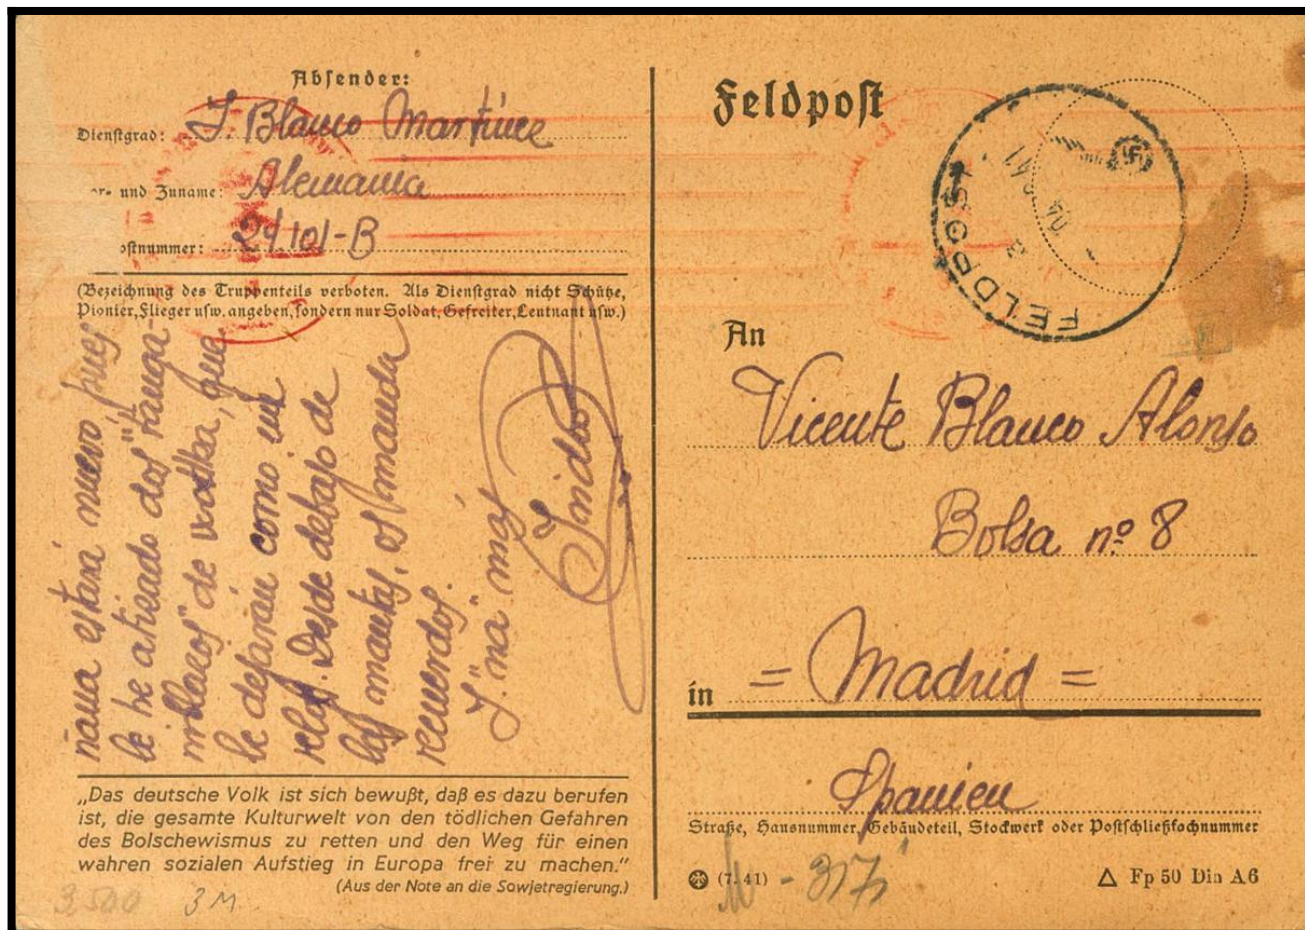 Absender:
Dienstgrad: J. Blanco Martínez
und Zuname: Alemania
ostnummer: 24101-B
(Bezeichnung des Truppenteils verboten. Als Dienstgrad nicht Schütze,
Pionier, Flieger usw. angeben, sondern nur Soldat, Gefreiter, Leutnant usw.)
ñana estará nuevo pues
le he atizado dos "tanga-
nillazos" de vodka, que
le dejarán como un
reloj. Desde debajo de
las mantas, os manda
recuerdos.
Y "ná" más
„Das deutsche Volk ist sich bewußt, daß es dazu berufen
ist, die gesamte Kulturwelt von den tödlichen Gefahren
des Bolschewismus zu retten und den Weg für einen
wahren sozialen Aufstieg in Europa frei zu machen.“
(Aus der Note an die Sowjetregierung.)
3500 3M
Feldpost
FELDPOST
An
Vicente Blanco Alonso
Bolsa nº 8
in = Madrid =
Spanien
Straße, Hausnummer, Gebäudeteil, Stockwerk oder Postschließfachnummer
(7. 41)
Fp 50 Din A6